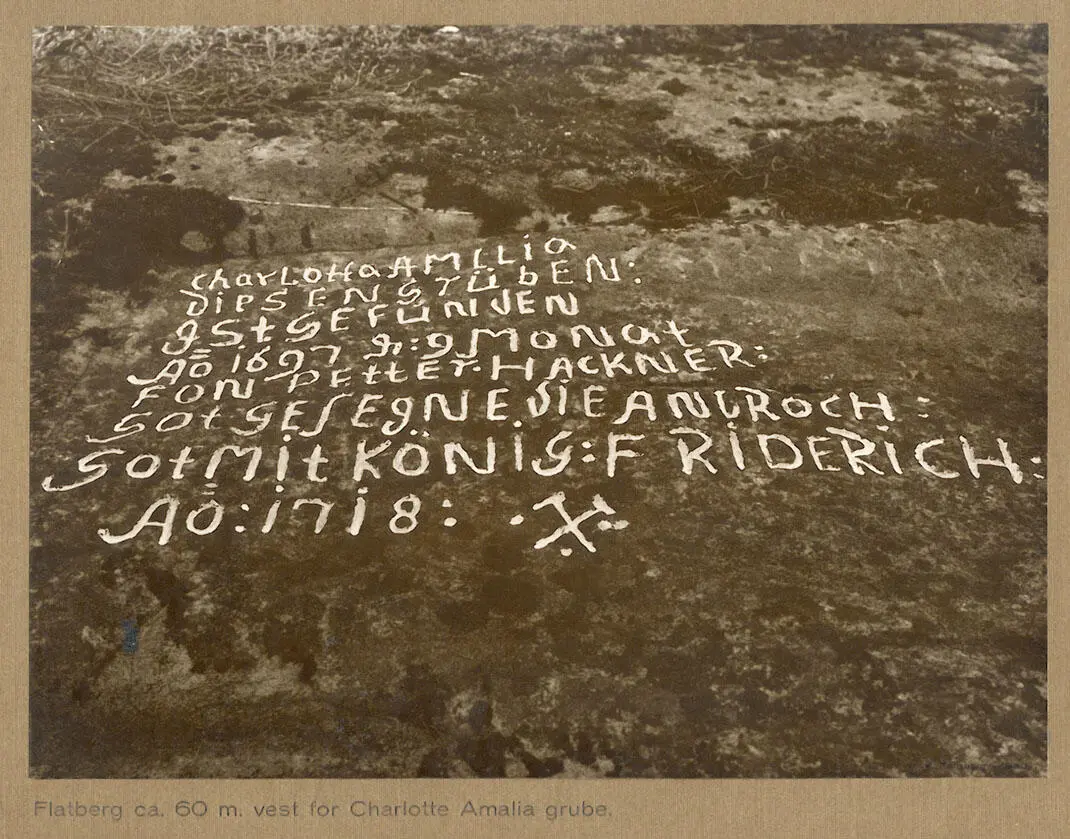 CharLottaAMILia
DiESENGRÜbEN:
ISt GEFUNdEN
Aō 1697 n:9 MONat
FON PEttER·HACKNER:
GOt GESEGNE DIE ANbROCH:
GOt Mit KÖNiG:FRiDERiCH:
Aō:1718:
Flatberg ca. 60 m. vest for Charlotte Amalia grube.